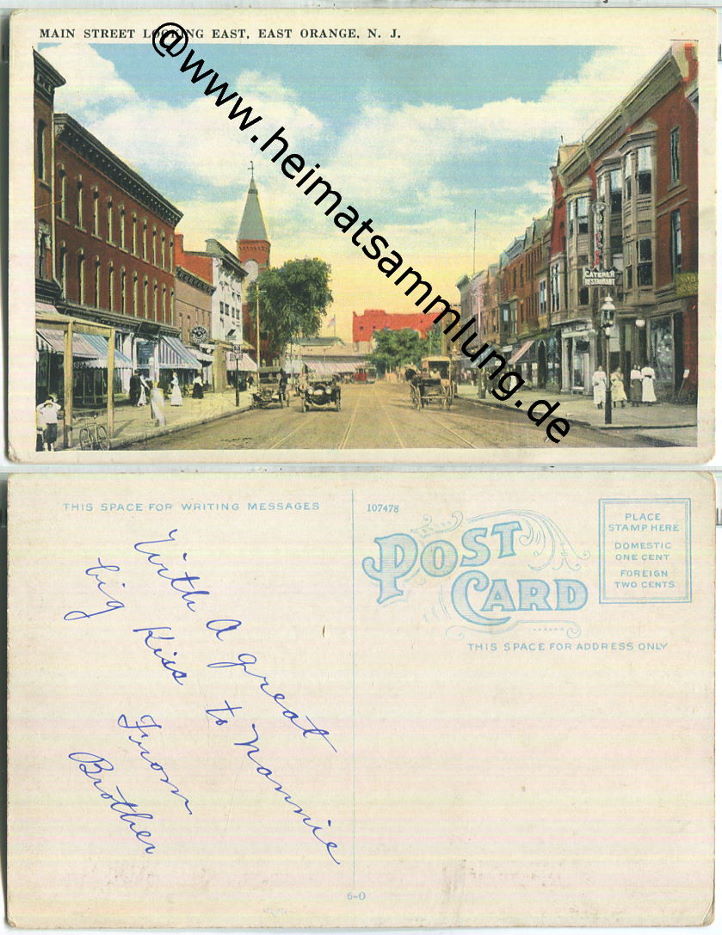 MAIN STREET LOOKING EAST, EAST ORANGE, N. J.
@www.heimatsammlung.de
CATERER
RESTAURANT
THIS SPACE FOR WRITING MESSAGES
With A great
big Kiss to Nannie
From
Brother
107478
POST
CARD
PLACE
STAMP HERE
DOMESTIC
ONE CENT
FOREIGN
TWO CENTS
THIS SPACE FOR ADDRESS ONLY
6-0